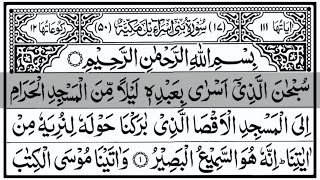 اٰیَاتُهَا ۱۱۱ (۱۷) سُوْرَةُ بَنِیْۤ اِسْرَآءِیْلَ مَكِّیَّةٌ (۵۰) رُكُوْعَاتُهَا ۱۲
بِسْمِ اللّٰهِ الرَّحْمٰنِ الرَّحِیْمِ
سُبْحٰنَ الَّذِیْۤ اَسْرٰی بِعَبْدِهٖ لَیْلًا مِّنَ الْمَسْجِدِ الْحَرَامِ
اِلَی الْمَسْجِدِ الْاَقْصَا الَّذِیْ بٰرَكْنَا حَوْلَهٗ لِنُرِیَهٗ مِنْ
اٰیٰتِنَا ؕ اِنَّهٗ هُوَ السَّمِیْعُ الْبَصِیْرُ ۱ وَاٰتَیْنَا مُوْسَی الْكِتٰبَ